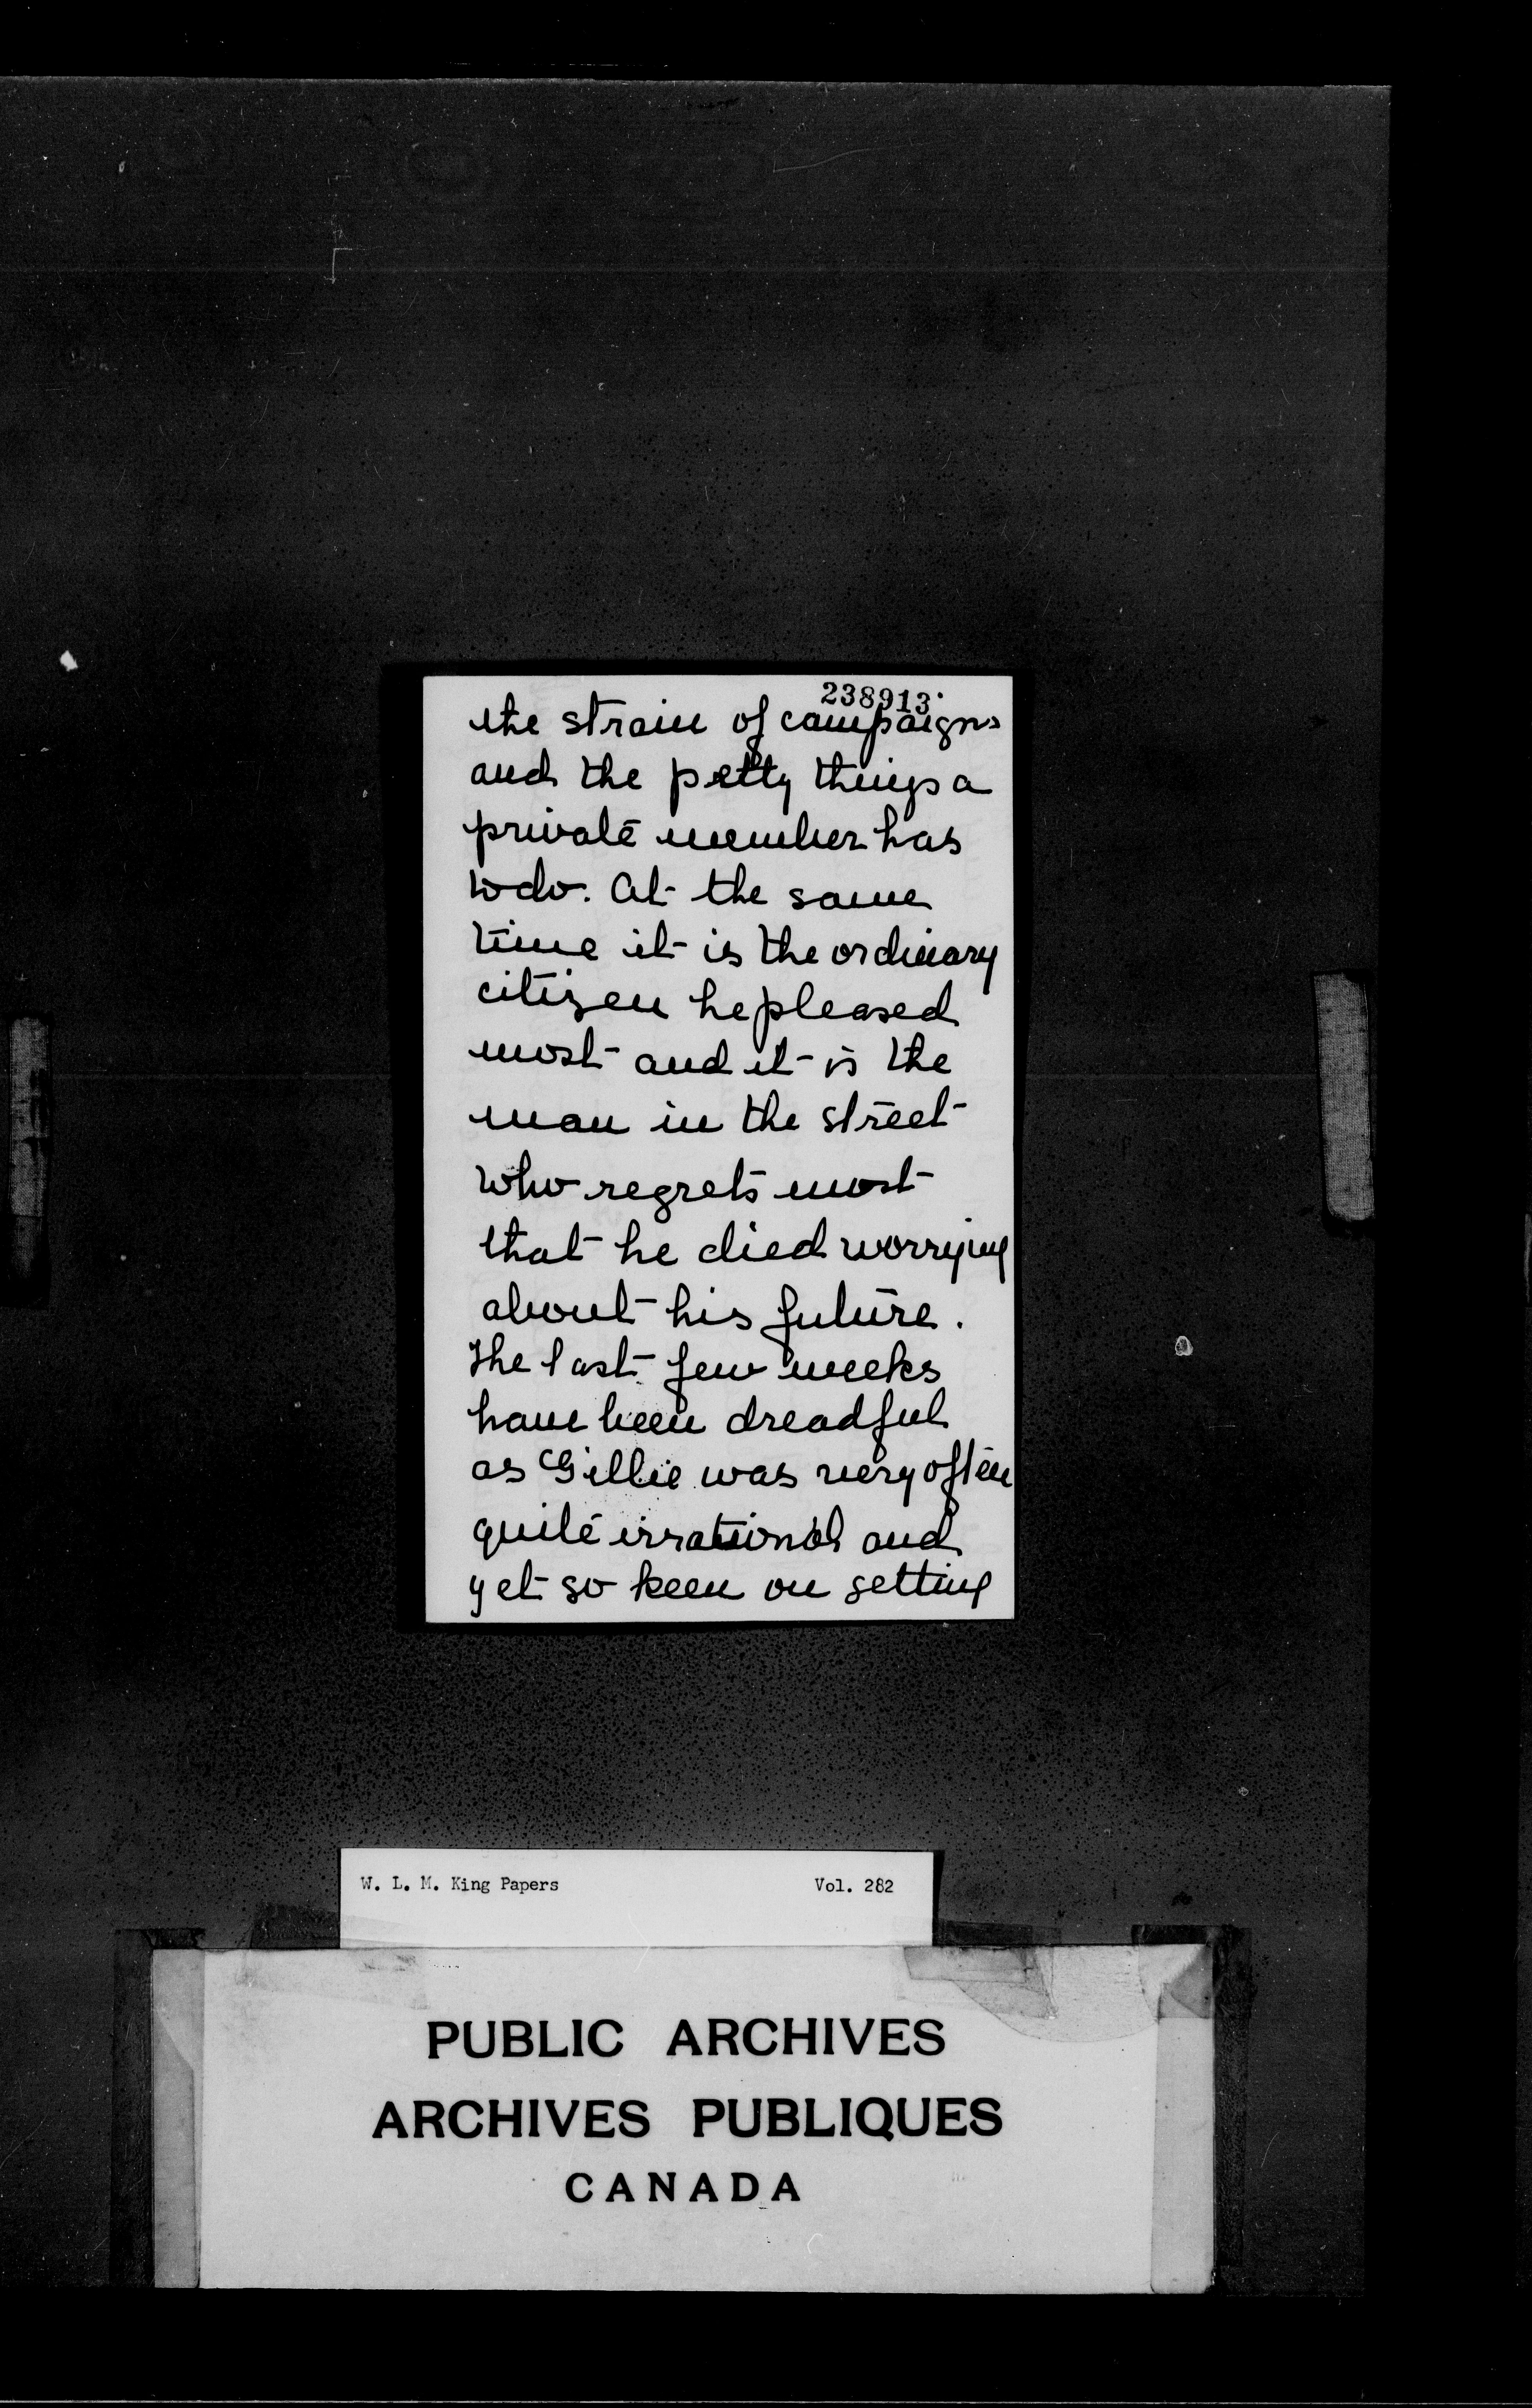 238913.
the strain of campaigns
and the petty things a
private member has
to do. At the same
time it is the ordinary
citizen he pleased
most and it is the
man in the street
who regrets most
that he died worrying
about his future.
The last few weeks
have been dreadful
as Gillie was very often
quite irrational and
yet so keen on getting
W. L. M. King Papers Vol. 282
PUBLIC ARCHIVES
ARCHIVES PUBLIQUES
CANADA